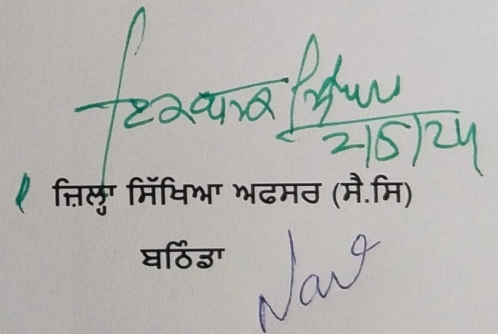 ਇਕਬਾਲ ਸਿੰਘ
2/5/24
ਜ਼ਿਲ੍ਹਾ ਸਿੱਖਿਆ ਅਫਸਰ (ਸੈ.ਸਿ)
ਬਠਿੰਡਾ
Nav